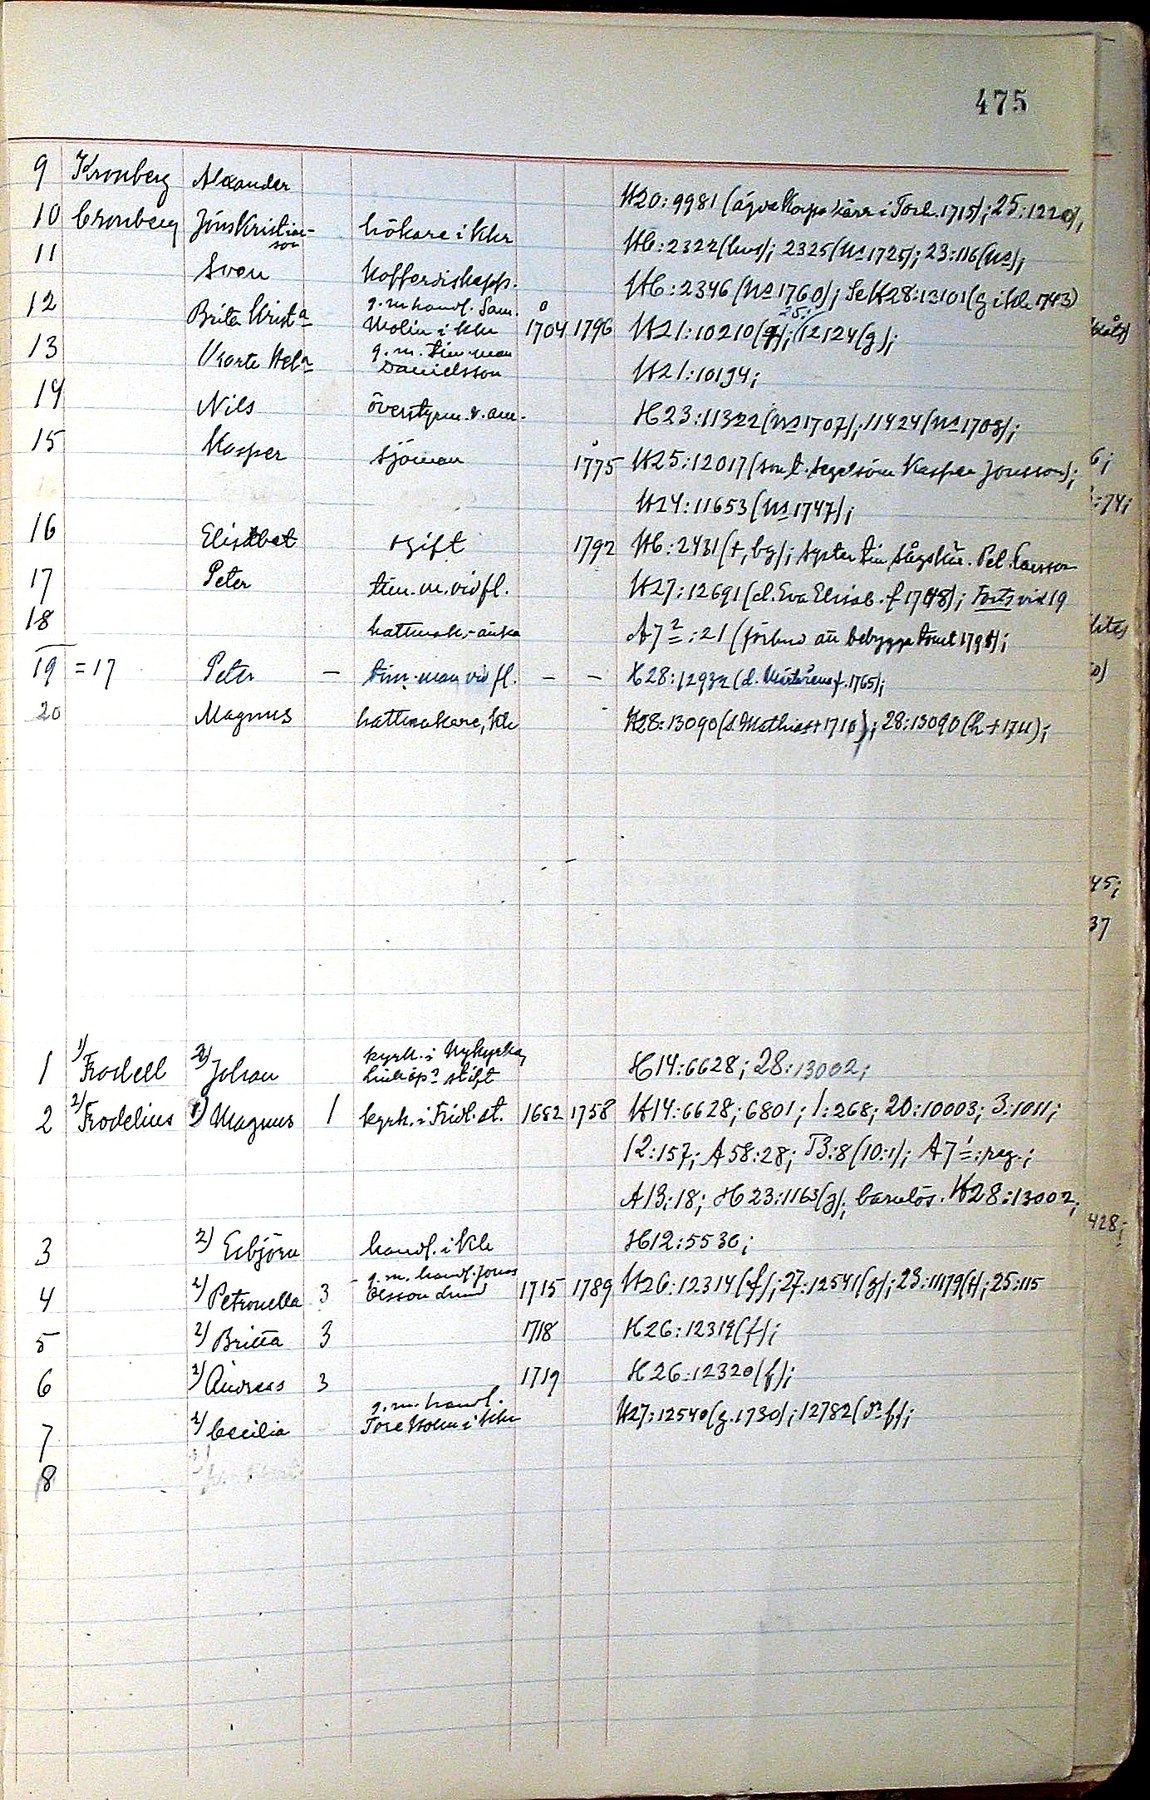 475
9 Kronberg Alexander H20:9981 (ägde i Torl. 1715); 25:1220);
10 Cronberg Jöns Kristian-son hökare i Khr H6:2322 (hus); 2325 (Ns 1725); 23:116 (Ns);
11 Sven Kofferdiskapp. H6:2346 (Ns 1760); Se H28:13101 (g i Kh 1743)
12 Brita Krista g.m. handl. Sam. Molin i Khr 1704 1796 H21:10210 (g); 25:12124 (g);
13 Hel. g.m. tim.man Danielsson H21:10194;
14 Nils överstyrm. v. am. H23:11322 (Ns 1707); 11424 (Ns 1708);
15 Kasper sjöman 1775 H25:12017 (son t. segelsöm Kasper Jonsson);
H24:11653 (Ns 1747);
16 Elisabet ogift 1792 H6:2431 (t, bg); syster tim
17 Peter tim.m. vid fl. H27:12691 (d. Eva Elisab. f 1748); Forts vid 19
18 hattmak.-änka A7 2:21 (förbud att bebygga tomt 179
19 = 17 Peter – tim.man vid fl. – – H28:12932 (d. f. 1765);
20 Magnus hattmakare, Kh H28:13090 (s. Mathias + 1710); 28:13090 (h + 1711);
1 1) Frodell 2) Johan kyrkh. i Nykyrka, Linköps stift H14:6628; 28:13002;
2 2) Frodelius 1) Magnus 1 kyrkh. i Frid.st. 1682 1758 H14:6628; 6801; 1:268; 20:10003; 3:1011;
12:157; A58:28; B:8 (10:1); A7 1: reg.;
A13:18; H23:1163 (g); barnlös. H28:13002;
3 2) Esbjörn handl. i Kh H12:5530;
4 2) Petronella 3 g.m. handl. Jonas Olsson Lund 1715 1789 H26:12314 (f); 27:12541 (g); 23:11179 (t); 25:115
5 2) Britta 3 1718 H26:12319 (f);
6 2) Andreas 3 1719 H26:12320 (f);
7 2) Cecilia g.m. handl. Tore Holm i Khr H27:12540 (g. 1730); 12782 (f);
8